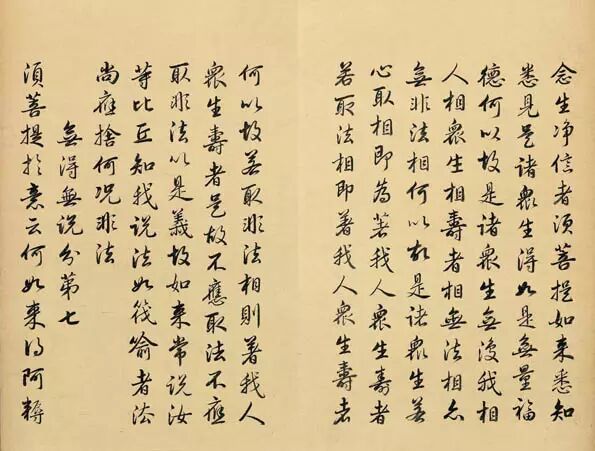 念生净信者須菩提如来悉知
悉見是諸衆生得如是無量福
德何以故是諸衆生無復我相
人相衆生相壽者相無法相亦
無非法相何以故是諸衆生若
心取相即為著我人衆生壽者
若取法相即著我人衆生壽者
何以故若取非法相則著我人
衆生壽者是故不應取法不應
取非法以是義故如来常說汝
等比丘知我說法如筏喻者法
尚應捨何况非法
無得無說分第七
須菩提於意云何如来得阿耨